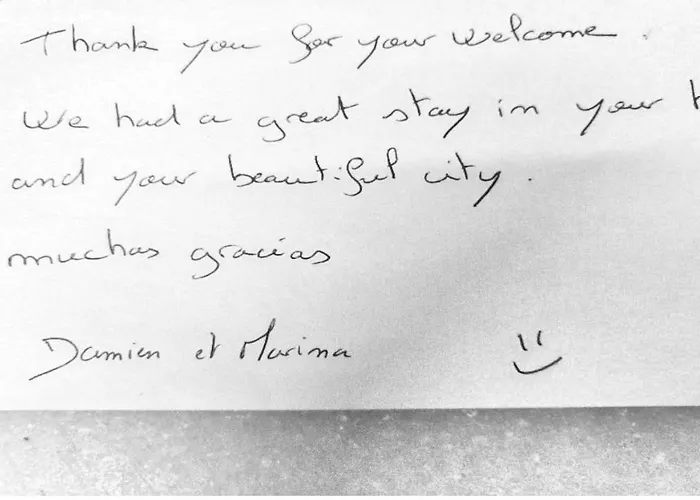 Thank you for your welcome.
We had a great stay in your
and your beautiful city.
muchas gracias
Damien et Marina